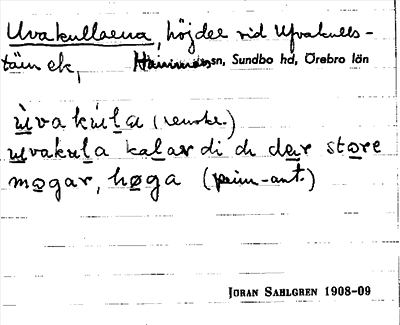 Uvakullarna, höjder vid Ufvakulls-
täin ek, Hammarsn, Sundbo hd, Örebro län
ùvakùla (renskr.)
uvakula kalar di di dar store
mogar, høga (prim-ant.)
JÖRAN SAHLGREN 1908-09